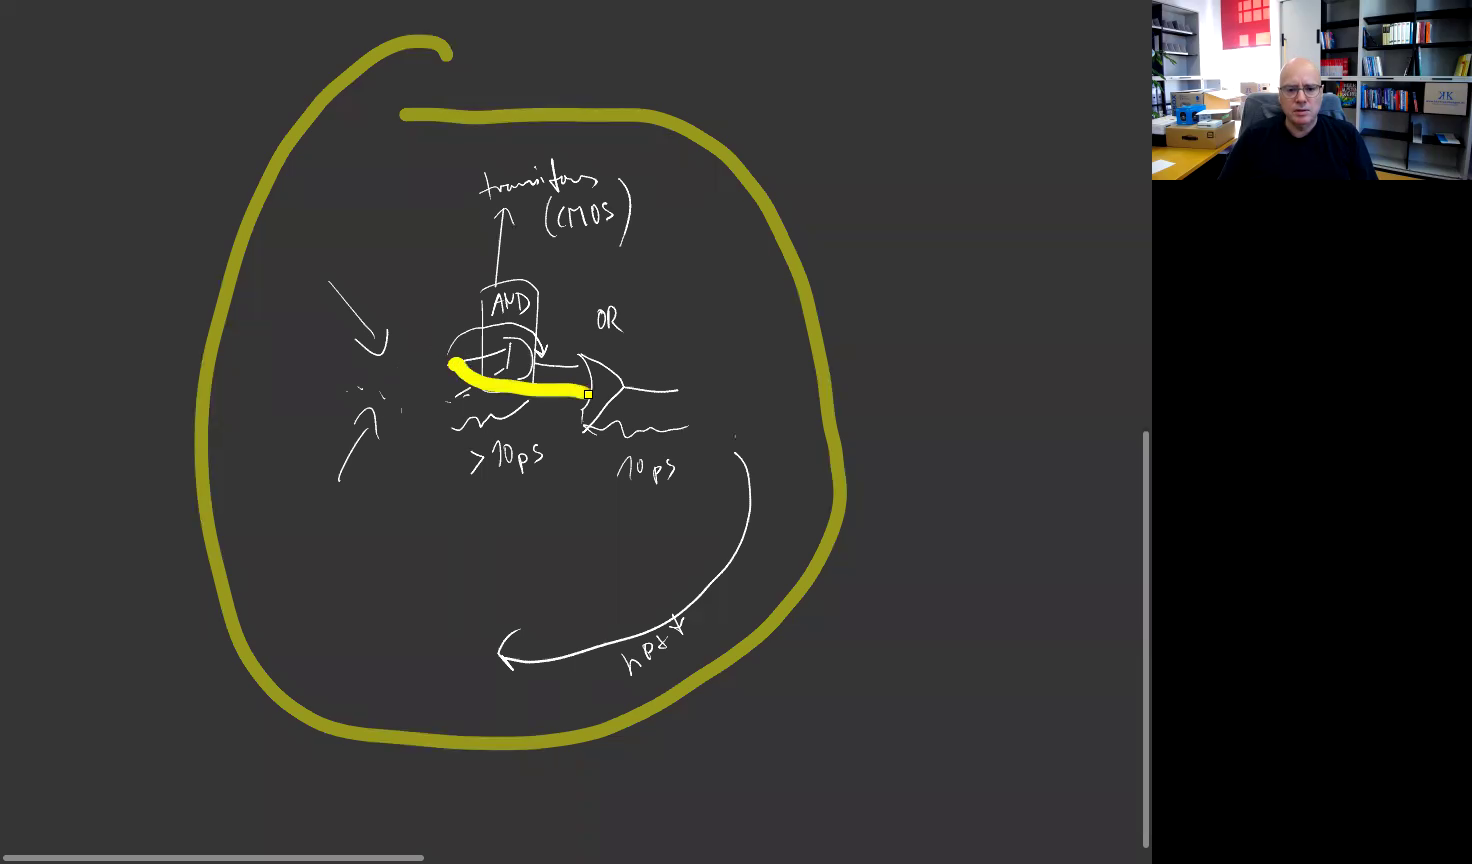 transitors
(CMOS)
AND
OR
>10ps
10ps
next